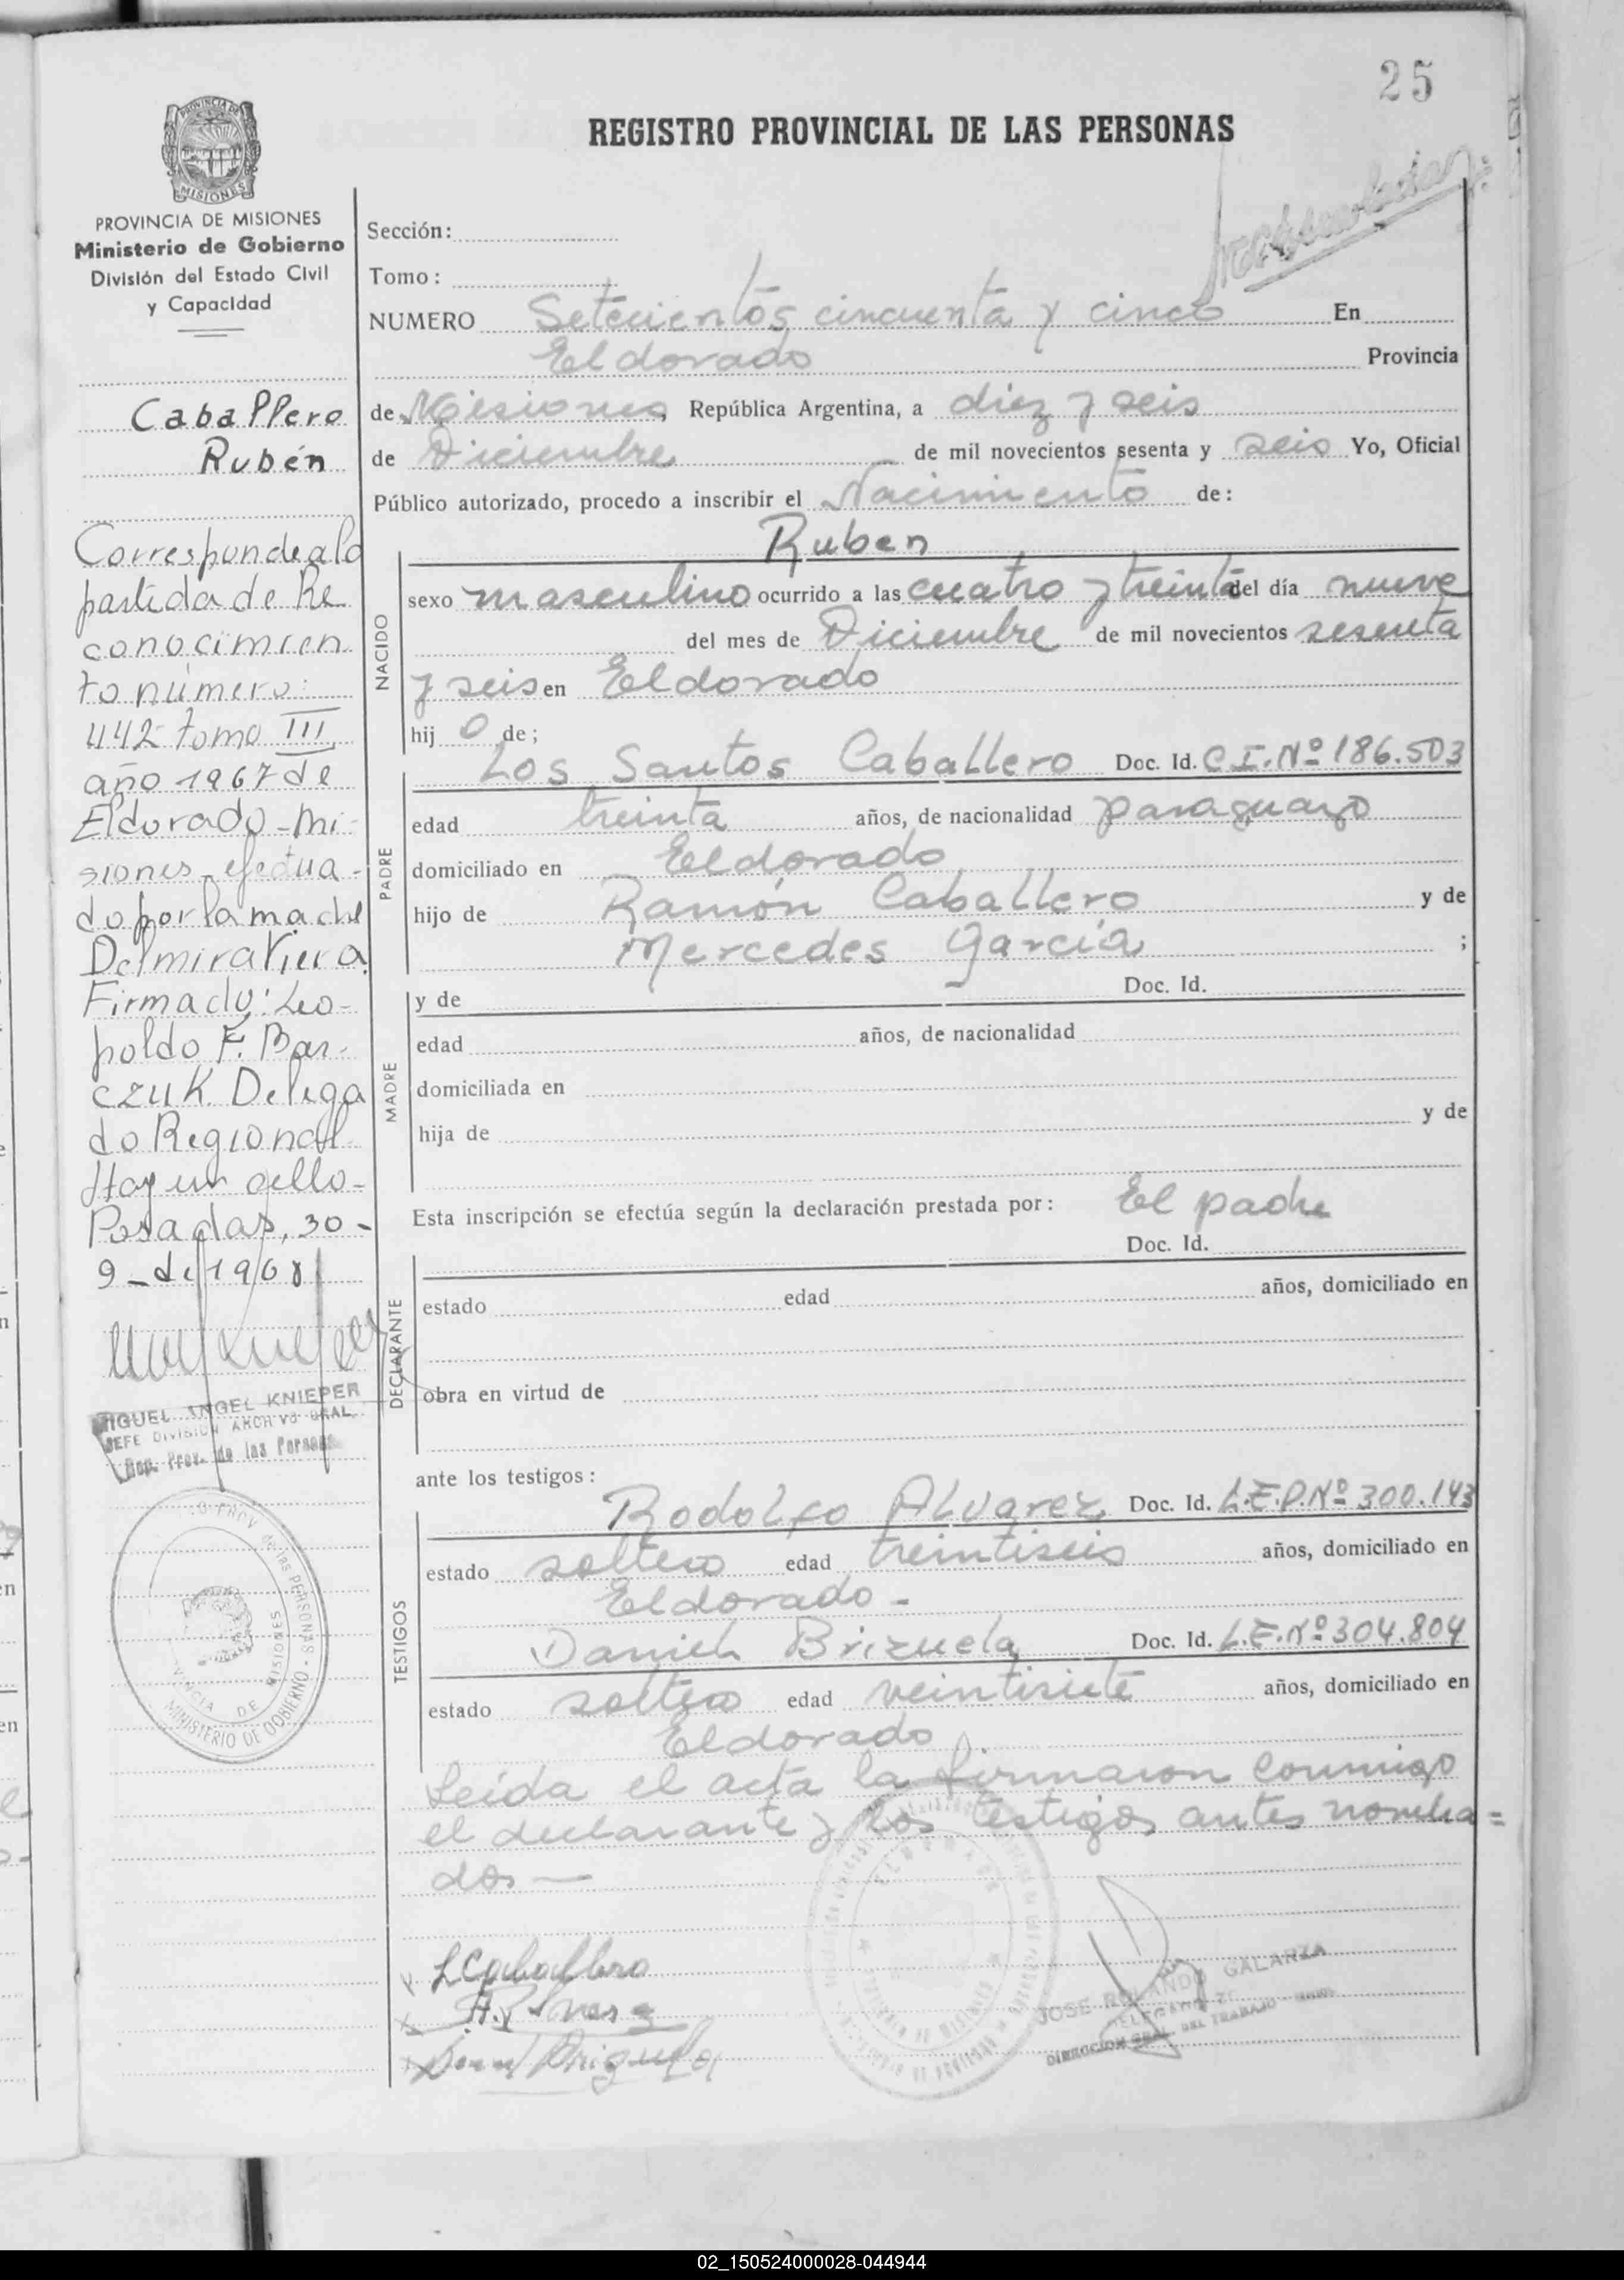 25
REGISTRO PROVINCIAL DE LAS PERSONAS
PROVINCIA DE
MISIONES
PROVINCIA DE MISIONES
Ministerio de Gobierno
División del Estado Civil
y Capacidad
Caballero
Rubén
Corresponde a la
partida de Re
conocimien
to número:
442 tomo III
año 1967 de
Eldorado - Mi-
siones efectua-
do por la madre
Delmira Viera
Firmado: Leo-
poldo F. Bar-
czuk. Delega
do Regional
Hay un sello-
Posadas, 30-
9-de 1968
MIGUEL ANGEL KNIEPER
JEFE DIVISION ARCHIVO GRAL.
Reg. Prov. de las Personas
PROV. de las PERSONAS -
MISIONES
MINISTERIO DE GOBIERNO
Sección:
Tomo:
NUMERO Setecientos cincuenta y cinco En
Eldorado Provincia
de Misiones, República Argentina, a diez y seis
de Diciembre de mil novecientos sesenta y seis Yo, Oficial
Público autorizado, procedo a inscribir el Nacimiento de:
NACIDO
Ruben
sexo masculino ocurrido a las cuatro y treinta del día nueve
del mes de Diciembre de mil novecientos sesenta
y seis en Eldorado
hij o de;
PADRE
Los Santos Caballero Doc. Id. C.I.Nº 186.503
edad treinta años, de nacionalidad paraguayo
domiciliado en Eldorado
hijo de Ramón Caballero y de
Mercedes Garcia ;
MADRE
y de Doc. Id.
edad años, de nacionalidad
domiciliada en
hija de y de
Esta inscripción se efectúa según la declaración prestada por: El padre
DECLARANTE
Doc. Id.
estado edad años, domiciliado en
obra en virtud de
ante los testigos:
TESTIGOS
Rodolfo Alvarez Doc. Id. L.E.P.Nº 300.143
estado soltero edad treintiseis años, domiciliado en
Eldorado -
Daniel Brizuela Doc. Id. L.E.Nº 304.804
estado soltero edad veintisiete años, domiciliado en
Eldorado
Leída el acta la firmaron conmigo
el declarante y los testigos antes nombra=
dos —
L Caballero
JOSE ROLANDO GALARZA
DIRECCION GRAL. DEL TRABAJO
02_150524000028-044944